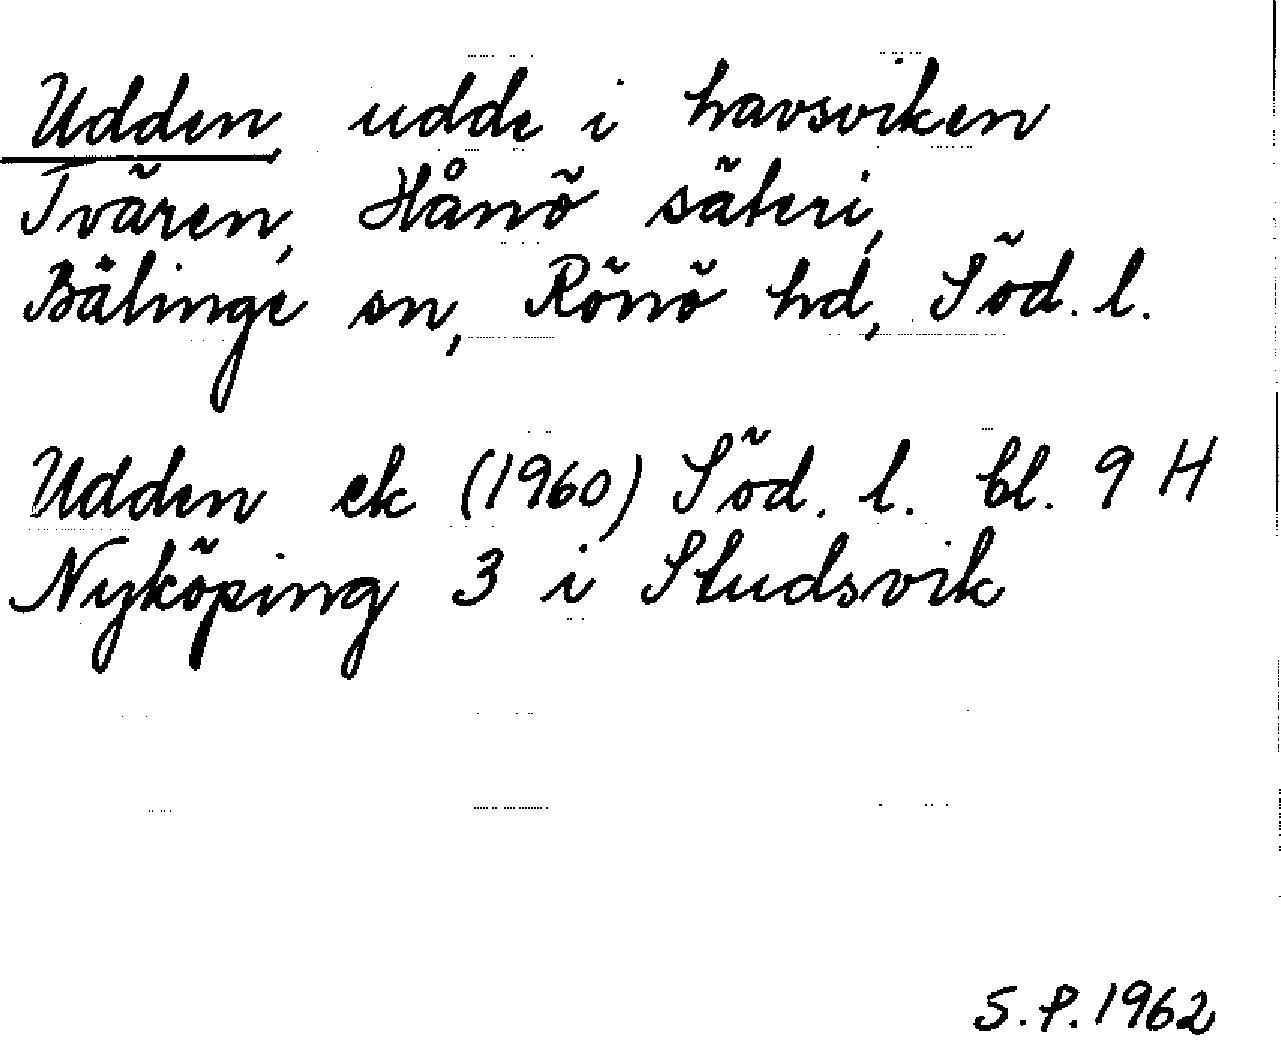 Udden, udde i havsviken
Tvären, Hånö säteri,
Bälinge sn, Rönö hd, Söd. l.
Udden ek (1960) Söd. l. bl. 9 H
Nyköping 3 i Studsvik
S.P. 1962